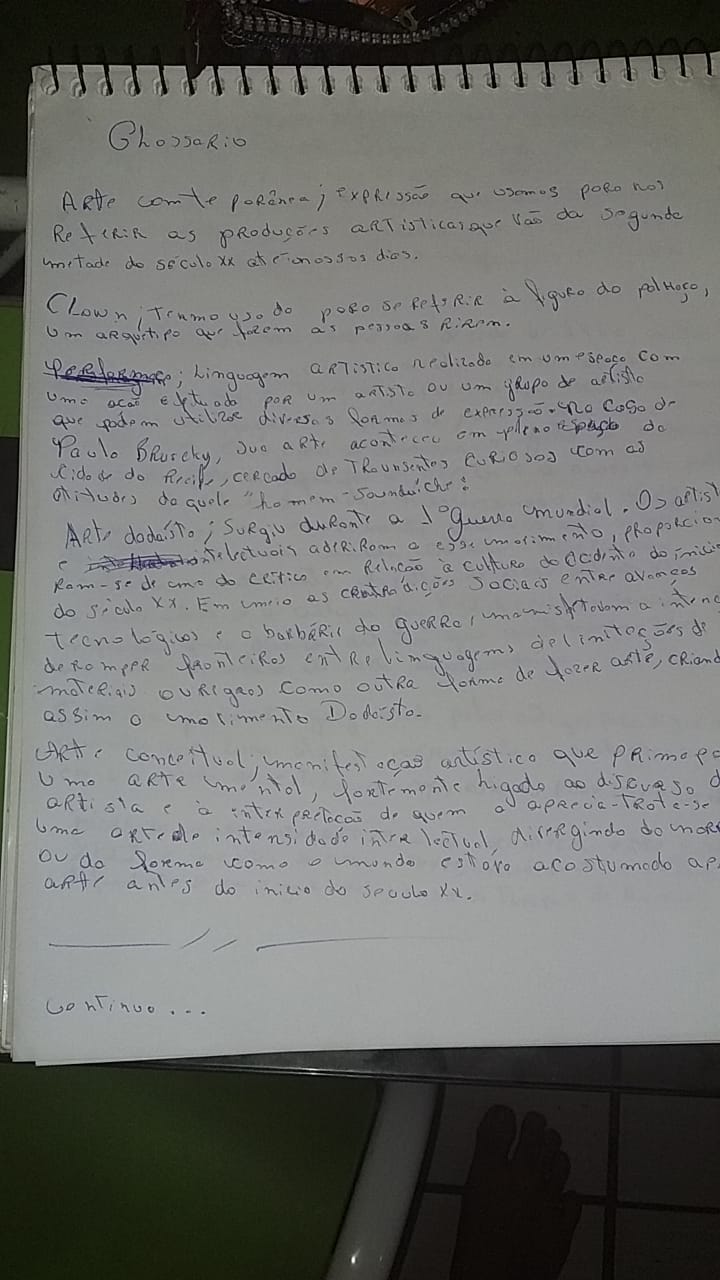 Glossario
Arte comte porânea; expressão que usamos para nos
Referir as produções artisticas que vão da segunda
metade do século XX até a nossos dias.
Clown; Termo usado para se referir à figura do palhaço,
um arquétipo que fazem as pessoas rirem.
Performaçe; Linguagem artistica realizada em um espaço com
uma ação efetuada por um artista ou um grupo de artista
que podem utilizar diversas formas de expressão. No caso de
Paulo Bruscky, sua arte aconteceu em pleno espaço da
cidade do Recife, cercado de Transentes curiosos com as
atitudes daquele "homem-sanduiche".
Arte dadaista; Surgiu durante a 1º guerra mundial. Os artist
e intelectuais aderiram a esse movimento, proporcion
ram-se de uma da critica em relação à cultura do ocidente do inicio
do século XX. Em meio as contradições sociais entre avanços
tecnologicos e a barbárie da guerra, manisfestavam a intenc
de romper fronteiras entre linguagens delimitações de
materiais ou regras como outra forma de fazer arte, criand
assim o movimento Dadaista.
Arte conceitual; manifestação artistica que prima po
uma arte mental, fortemente ligado ao discurso d
artista e à interpretação de quem a aprecia-trata-se
uma arte de intensidade intelectual, divergindo do mor
ou da forma como o mundo estava acostumado ap
arte antes do inicio do seculo XX.
continua...